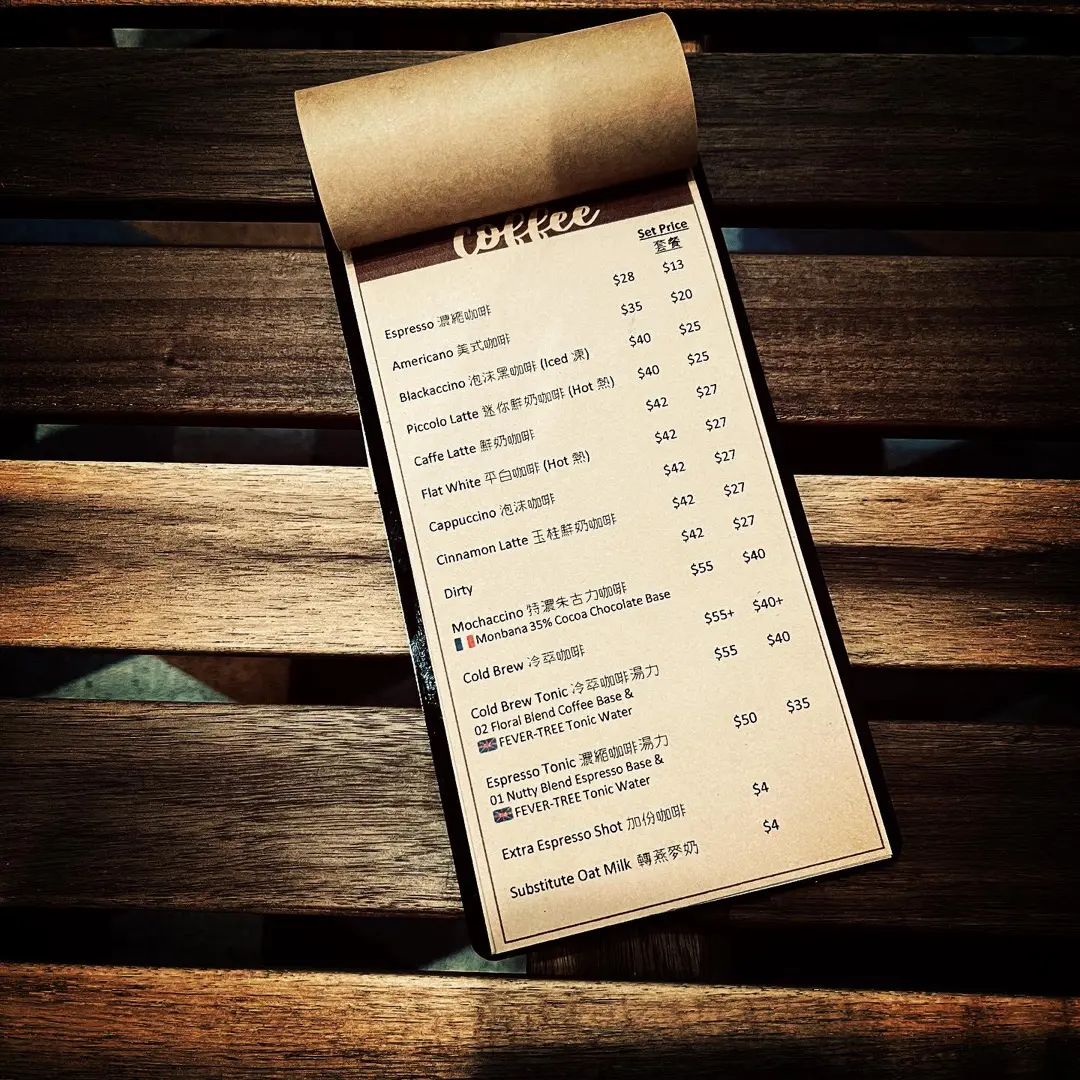 coffee
Set Price
套餐
Espresso 濃縮咖啡 $28 $13
Americano 美式咖啡 $35 $20
Blackaccino 泡沫黑咖啡 (Iced 凍) $40 $25
Piccolo Latte 迷你鮮奶咖啡 (Hot 熱) $40 $25
Caffe Latte 鮮奶咖啡 $42 $27
Flat White 平白咖啡 (Hot 熱) $42 $27
Cappuccino 泡沫咖啡 $42 $27
Cinnamon Latte 玉桂鮮奶咖啡 $42 $27
Dirty $42 $27
Mochaccino 特濃朱古力咖啡 $55 $40
Monbana 35% Cocoa Chocolate Base
Cold Brew 冷萃咖啡 $55+ $40+
Cold Brew Tonic 冷萃咖啡湯力 $55 $40
02 Floral Blend Coffee Base &
FEVER-TREE Tonic Water
Espresso Tonic 濃縮咖啡湯力 $50 $35
01 Nutty Blend Espresso Base &
FEVER-TREE Tonic Water
Extra Espresso Shot 加份咖啡 $4
Substitute Oat Milk 轉燕麥奶 $4